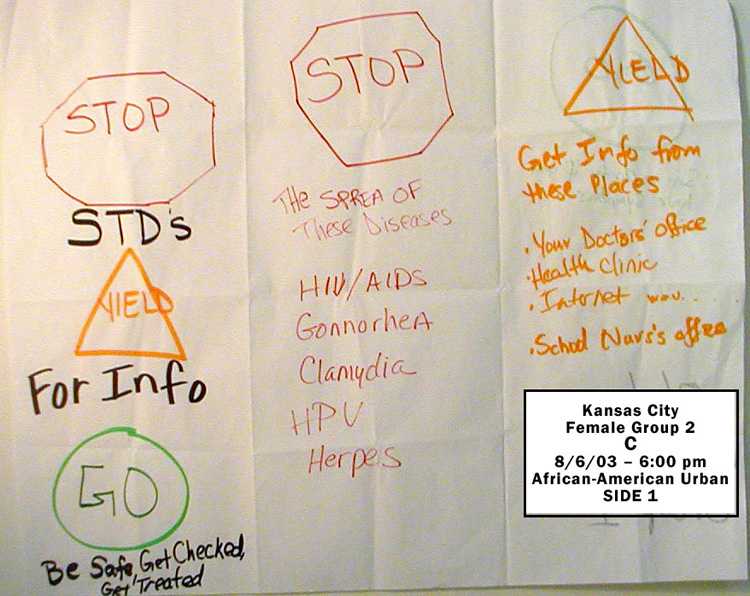 STOP
STD's
YIELD
For Info
GO
Be Safe, Get Checked,
Get Treated
STOP
THE SPREA OF
These Diseases
HIV/AIDS
GonnorheA
Clamydia
HPV
Herpes
YIELD
Get Info from
these Places
• Your Doctors' office
• Health Clinic
• Internet
• School Nurs's office
Kansas City
Female Group 2
C
8/6/03 – 6:00 pm
African-American Urban
SIDE 1